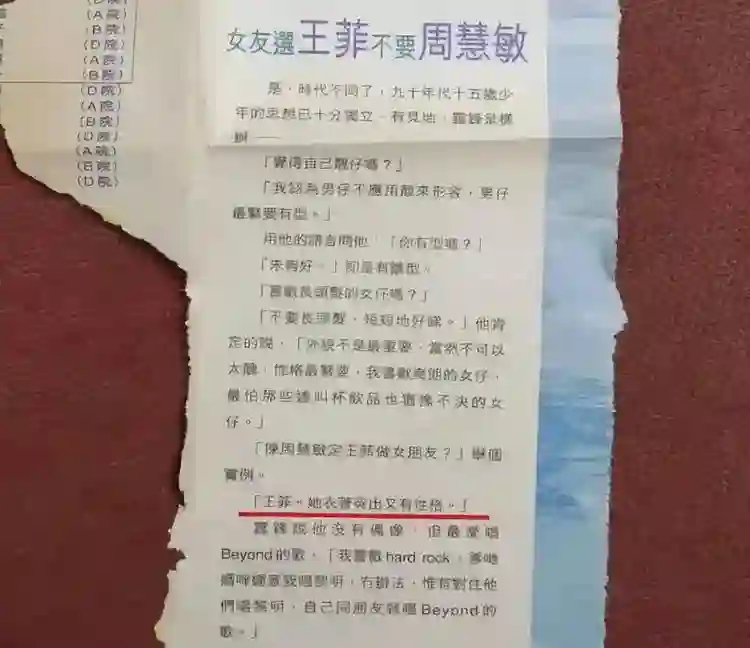 (A院)
(B院)
(D院)
(A院)
(B院)
(D院)
(A院)
(B院)
(D院)
(A院)
(B院)
(D院)
女友選王菲不要周慧敏
是,時代不同了,九十年代十五歲少
年的思想已十分獨立、有見地,霆鋒是模
「覺得自己靚仔嗎?」
「我認為男仔不應用靚來形容,男仔
最緊要有型。」
用他的語言問他:「你有型嗎?」
「未夠好。」即是有啲型。
「喜歡長頭髮的女仔嗎?」
「不要長頭髮,短短地好睇。」他肯
定的說,「外貌不是最重要,當然不可以
太醜,性格最緊要,我喜歡爽朗的女仔,
最怕那些連叫杯飲品也猶豫不決的女
仔。」
「揀周慧敏定王菲做女朋友?」舉個
實例。
「王菲。她衣著突出又有性格。」
霆鋒說他沒有偶像,但最愛唱
Beyond的歌,「我喜歡hard rock,爹哋
媽咪鍾意我唱黎明,冇辦法,惟有對住他
們唱黎明,自己同朋友就唱Beyond的
歌。」